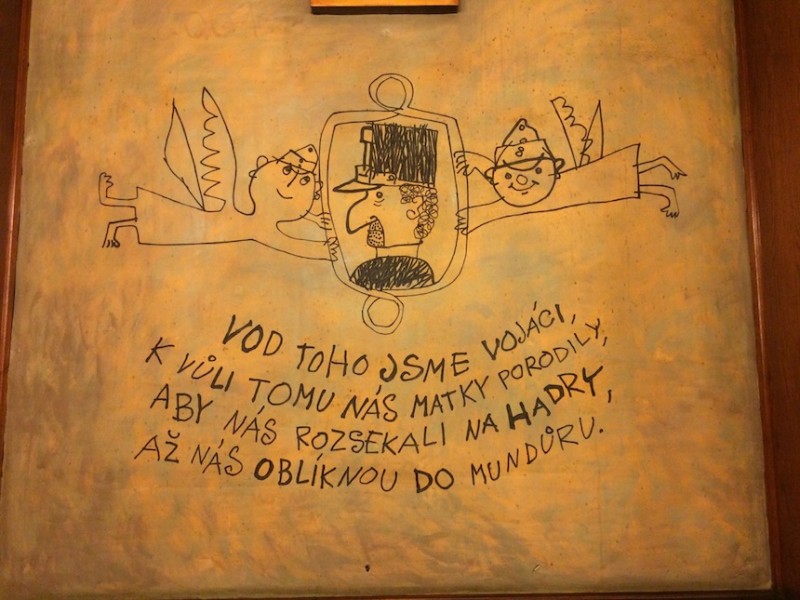 VOD TOHO JSME VOJÁCI,
K VŮLI TOMU NÁS MATKY PORODILY,
ABY NÁS ROZSEKALI NA HADRY,
AŽ NÁS OBLÍKNOU DO MUNDŮRU.